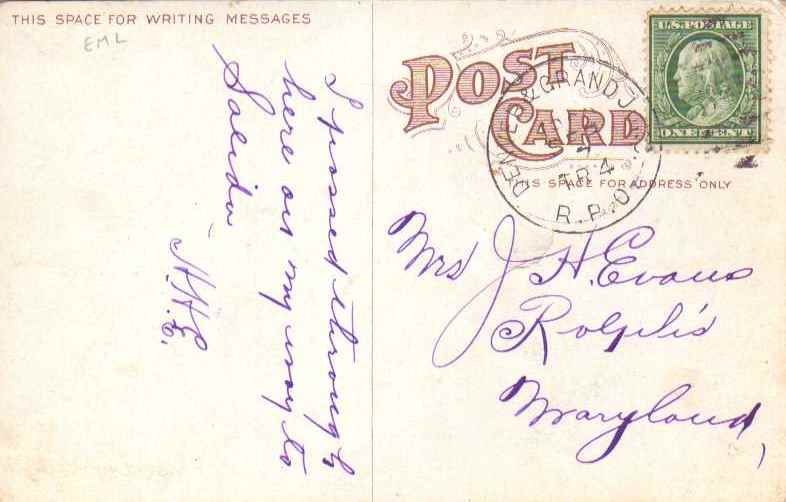 THIS SPACE FOR WRITING MESSAGES
EML
I passed through
here on my way to
Salida
H.H.E.
POST
CARD
U.S. POSTAGE
ONE CENT
DENVER & GRAND J
SEP
4
TR 4
R.P.O.
THIS SPACE FOR ADDRESS ONLY
Mrs J. H. Evans
Rolph's
Maryland,